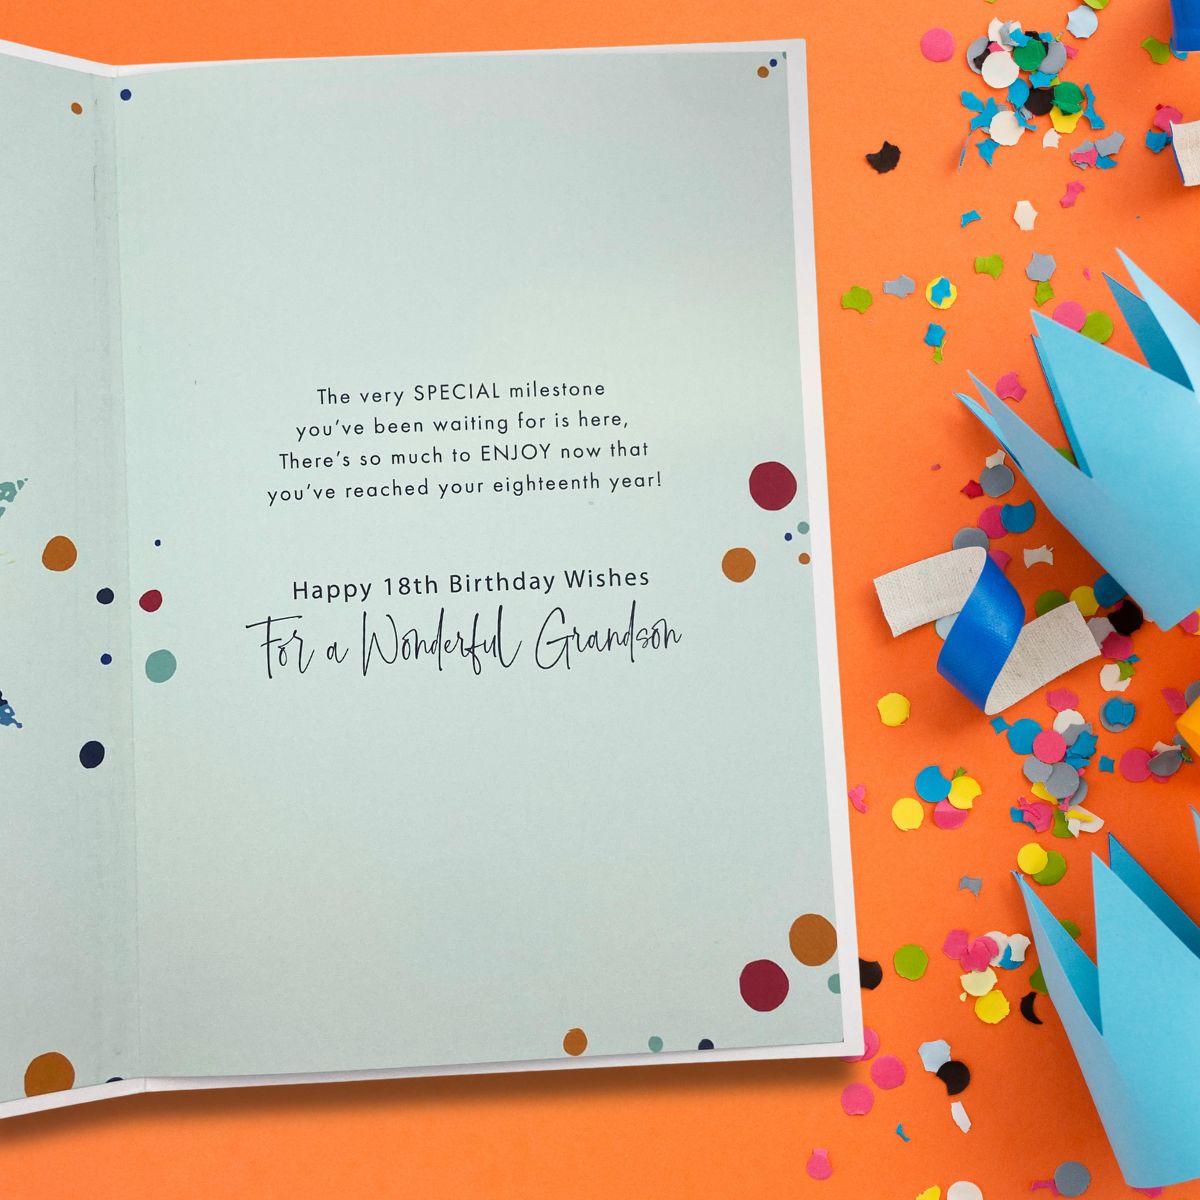 The very SPECIAL milestone
you've been waiting for is here,
There's so much to ENJOY now that
you've reached your eighteenth year!
Happy 18th Birthday Wishes
For a Wonderful Grandson